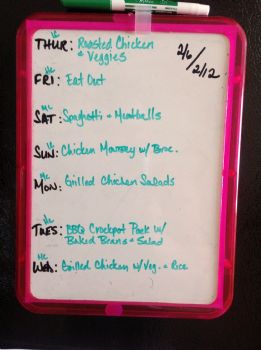 THUR: Roasted Chicken
+ Veggies
2/6
2/12
FRI: Eat Out
SAT: Spaghetti + Meatballs
SUN: Chicken Monterey w/ Broc.
MON: Grilled Chicken Salads
TUES: BBQ Crockpot Pork w/
Baked Beans + Salad
WED: Grilled Chicken w/ Veg. + Rice